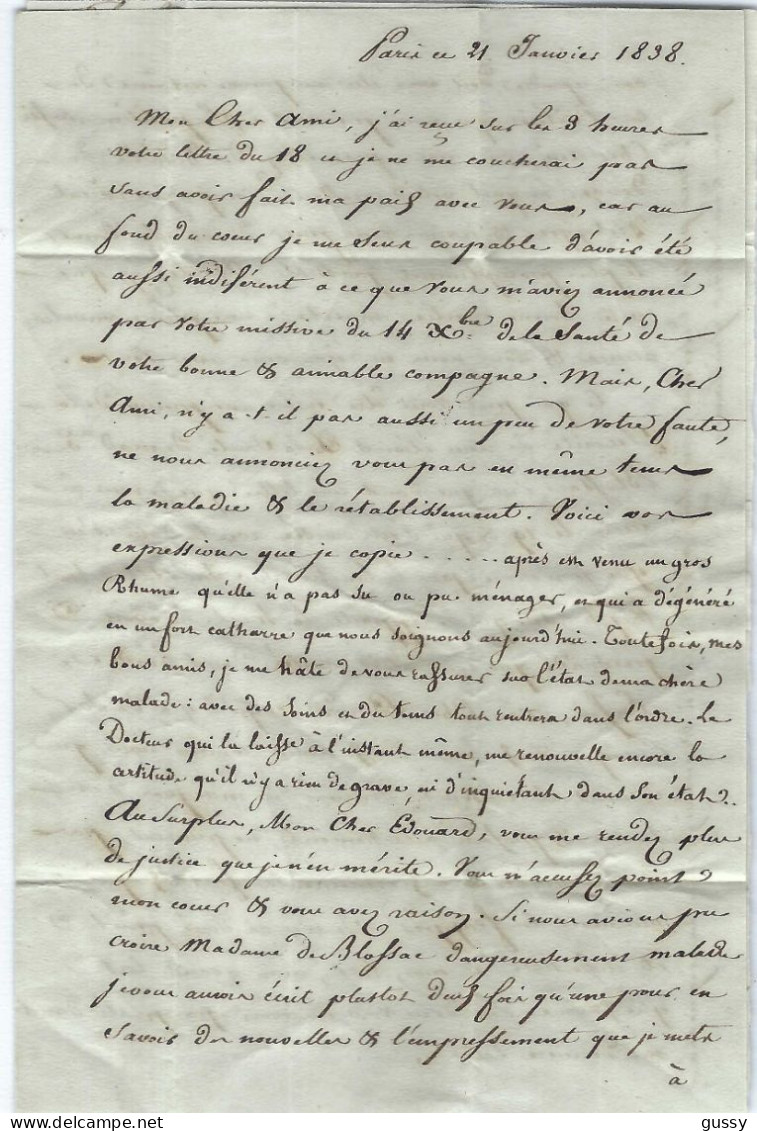 Paris ce 21 Janvier 1838.
Mon Cher Ami, j'ai reçu sur les 3 heures
votre lettre du 18 et je ne me coucherai pas
sans avoir fait ma paix avec vous, car au
fond du coeur je me sens coupable d'avoir été
aussi indiférent à ce que vous m'aviez annoncé
par votre missive du 14 Xbre de la Santé de
votre bonne & aimable compagne. Mais, Cher
Ami, n'y a-t-il pas aussi un peu de votre faute,
ne nous annonciez vous pas en même tems
la maladie & le rétablissement. Voici vos
expressions que je copie ..... après est venu un gros
Rhume qu'elle n'a pas su ou pu ménager, et qui a dégénéré
en un fort catharre que nous soignons aujourd'hui. Toutefois, mes
bons amis, je me hâte de vous rassurer sur l'état de ma chère
malade : avec des soins et du tems tout rentrera dans l'ordre. Le
Docteur qui la laisse à l'instant même, me renouvelle encore la
certitude qu'il n'y a rien de grave, ni d'inquiétant dans son état..
Au surplus, Mon Cher Edouard, vous me rendez plus
de justice que je n'en mérite. Vous n'accusez point
mon coeur & vous avez raison. Si nous avions pu
croire Madame de Blossac dangereusement malade
je vous aurois écrit plustot deux fois qu'une pour en
savoir des nouvelles & l'empressement que je mets
à
gussy